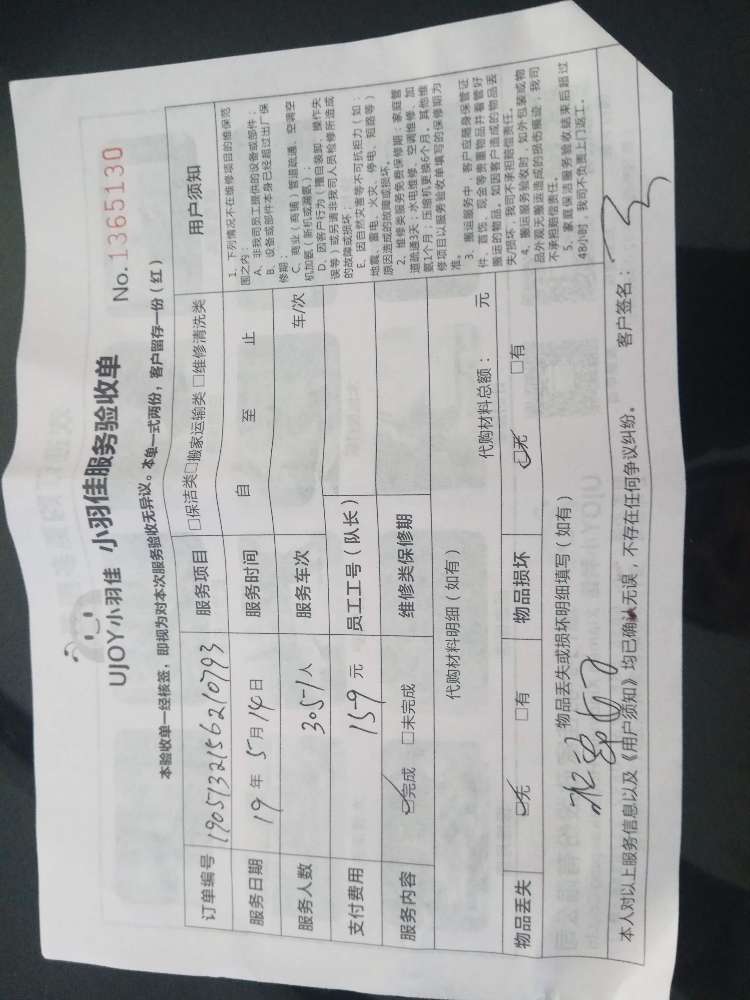 UJOY小羽佳 小羽佳服务验收单
No.1365130
本验收单一经核签，即视为对本次服务验收无异议。本单一式两份，客户留存一份（红）
订单编号 1905132156210793 服务项目 □保洁类□搬家运输类 □维修清洗类
服务日期 19 年 5 月 14 日 服务时间 自 至 止
服务人数 3051 人 服务车次 车/次
支付费用 159 元 员工工号（队长）
服务内容 □完成 □未完成 维修类保修期
代购材料明细（如有） 代购材料总额： 元
物品丢失 □无 □有 物品损坏 □无 □有
物品丢失或损坏明细填写（如有）
用户须知
1、下列情况不在维修项目的维保范
围之内：
A、非我司员工提供的设备或部件；
B、设备或部件本身已经超过出厂保
修期；
C、商业（商铺）管道疏通、空调空
机加氨、新机或漏氨）；
D、因客户行为（擅自装卸、操作失
误等）或另请非我司人员检修所造成
的故障或损坏；
E、因自然灾害等不可抗拒力（如：
地震、雷电、火灾、停电、短路等）
原因造成的故障或损坏。
2、维修类服务免费保修期：家庭管
道疏通3天；水电维修、空调维修、加
氨1个月；压缩机更换6个月。其他维
修项目以服务验收单填写的保修期为
准。
3、搬运服务中，客户应随身保管证
件、首饰、现金等贵重物品并看管好
搬运的物品。如因客户造成的物品丢
失/损坏，我司不承担赔偿责任。
4、搬运服务验收时，如外包装或物
品外观无搬运造成的损伤痕迹，我司
不承担赔偿责任。
5、家庭保洁服务验收结束后超过
48小时，我司不负责上门返工。
本人对以上服务信息以及《用户须知》均已确认无误，不存在任何争议纠纷。 客户签名：